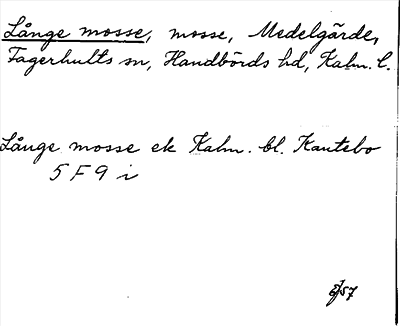 Långe mosse, mosse, Medelgärde,
Fagerhults sn, Handbörds hd, Kalm. l.
Långe mosse ek Kalm. bl. Kantebo
5 F 9 i